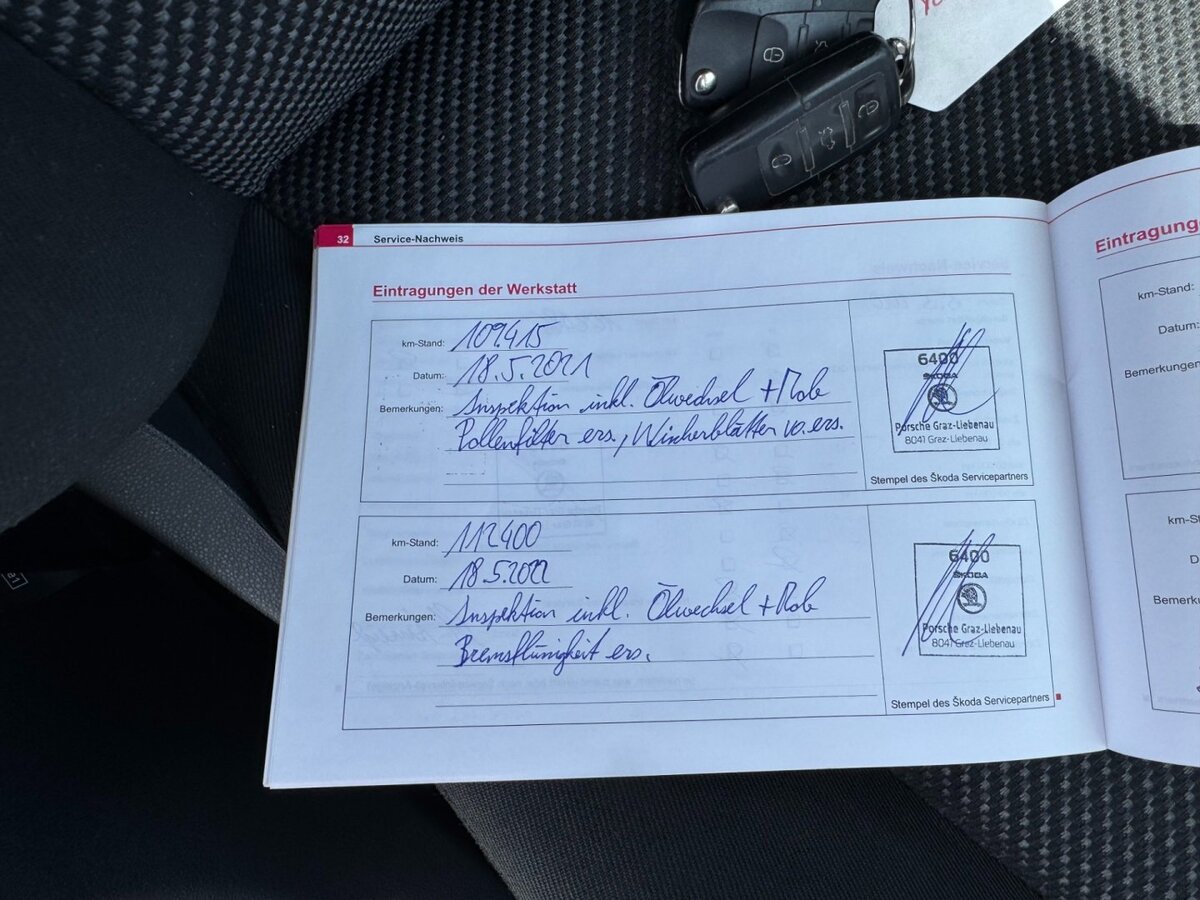 32 Service-Nachweis
Eintragungen der Werkstatt
km-Stand: 109415
Datum: 18.5.2021
Bemerkungen: Inspektion inkl. Ölwechsel + Mob
Pollenfilter ers., Wischerblätter vo. ers.
6400
ŠKODA
Porsche Graz-Liebenau
8041 Graz-Liebenau
Stempel des Škoda Servicepartners
km-Stand: 112400
Datum: 18.5.2022
Bemerkungen: Inspektion inkl. Ölwechsel + Mob
Bremsflüssigkeit ers.
6400
ŠKODA
Porsche Graz-Liebenau
8041 Graz-Liebenau
Stempel des Škoda Servicepartners
Eintragung
km-Stand:
Datum:
Bemerkungen
km-St
D
Bemerku